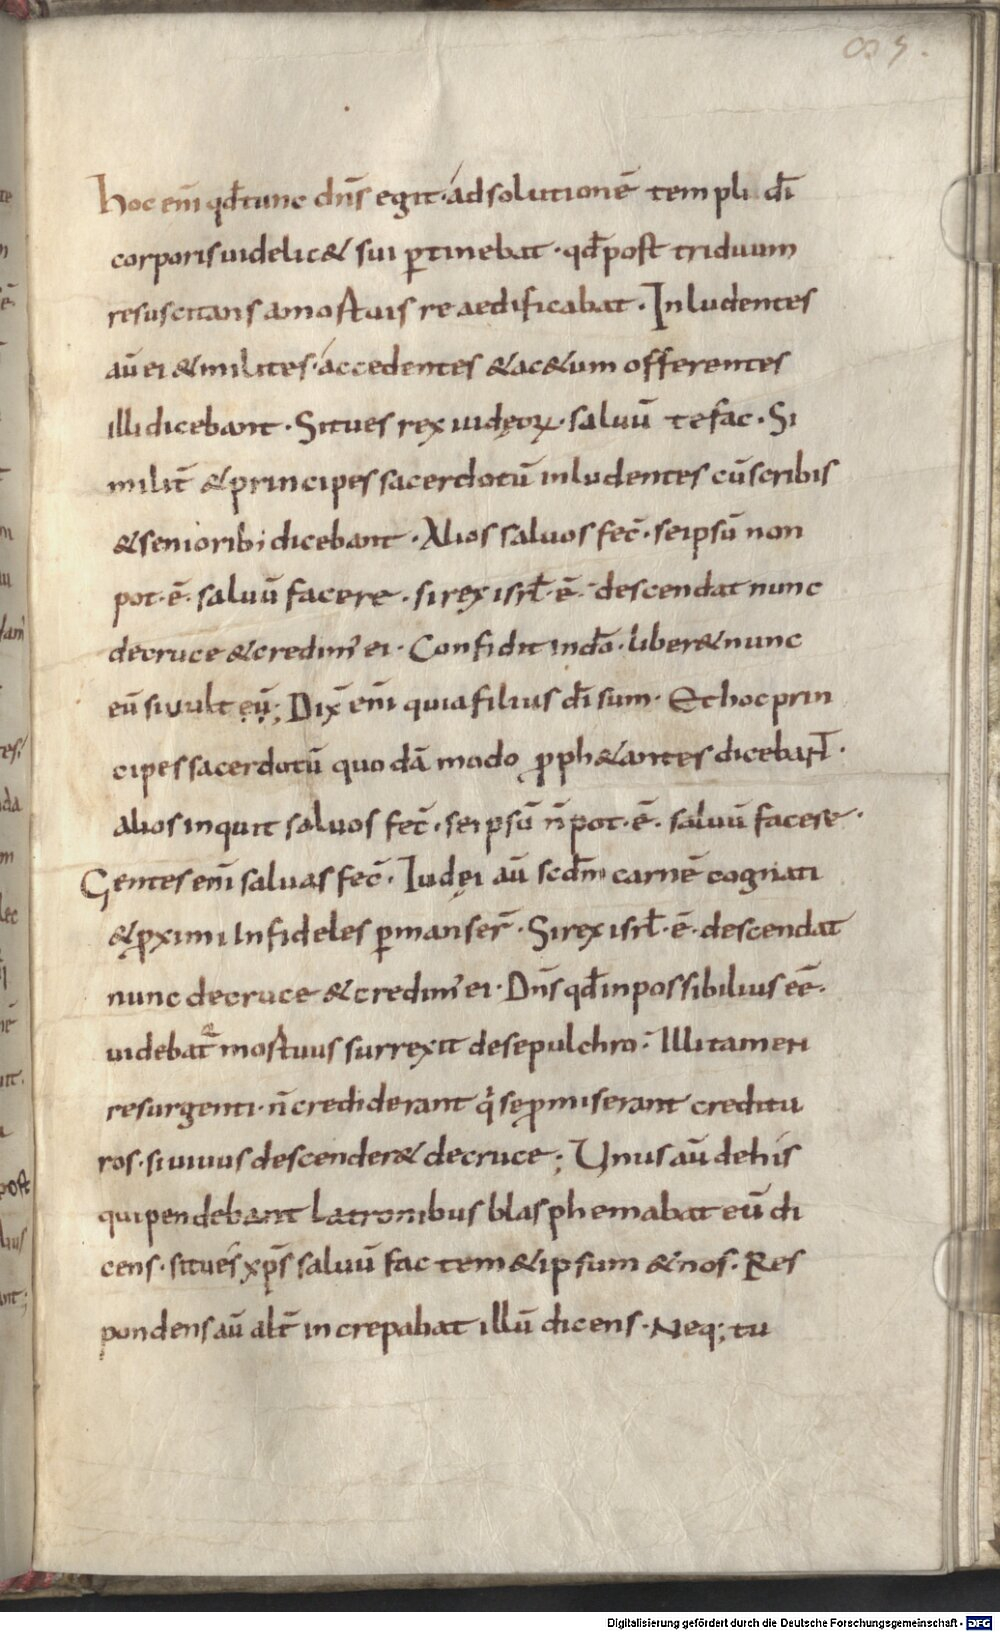 hoc enī qd̄ tunc dn̄s egit· ad solutionē templi dī
corporis uidelic& sui ꝑtinebat · qd̄ post triduum
resuscitans a mortuis reaedificabat · Inludentes
aū ei & milites· accedentes & ac&um offerentes
illi dicebant · Si tu es rex iudęoꝝ · saluū te fac · Si
milit̄ & principes sacerdotū inludentes cū scribis
& senioribꝫ dicebant · Alios saluos fec̄ · se ipsū non
pot·ē· saluū facere · si rex isrl̄·ē· descendat nunc
de cruce & credimꝰ ei · Confidit in dō · liber& nunc
eū si uult eū; Dix̄ enī quia filius dī sum · Et hoc prin
cipes sacerdotū quodā modo ꝓph&antes dicebant ·
alios inquit saluos fec̄ · se ipsū n̄ pot·ē· saluū facere ·
Gentes enī saluas fec̄ · Iudęi aū scdm̄ carnē cognati
& ꝓximi Infideles ꝑmanser̄ · Si rex isrl̄·ē· descendat
nunc de cruce & credimꝰ ei · Dn̄s qd̄ inpossibilius eē·
uidebat̄ mortuus surrexit de sepulchro · Illi tamen
resurgenti · n̄ crediderant q̇ se ꝓmiserant creditu
ros · si uiuus descender& de cruce; Unus aū de his
qui pendebant latronibus blasphemabat eū di
cens · si tu es xp̄s saluū fac tem&ipsum & nos · Res
pondens aū alt̄ increpabat illū dicens · Neq; tu
Digitalisierung gefördert durch die Deutsche Forschungsgemeinschaft - DFG